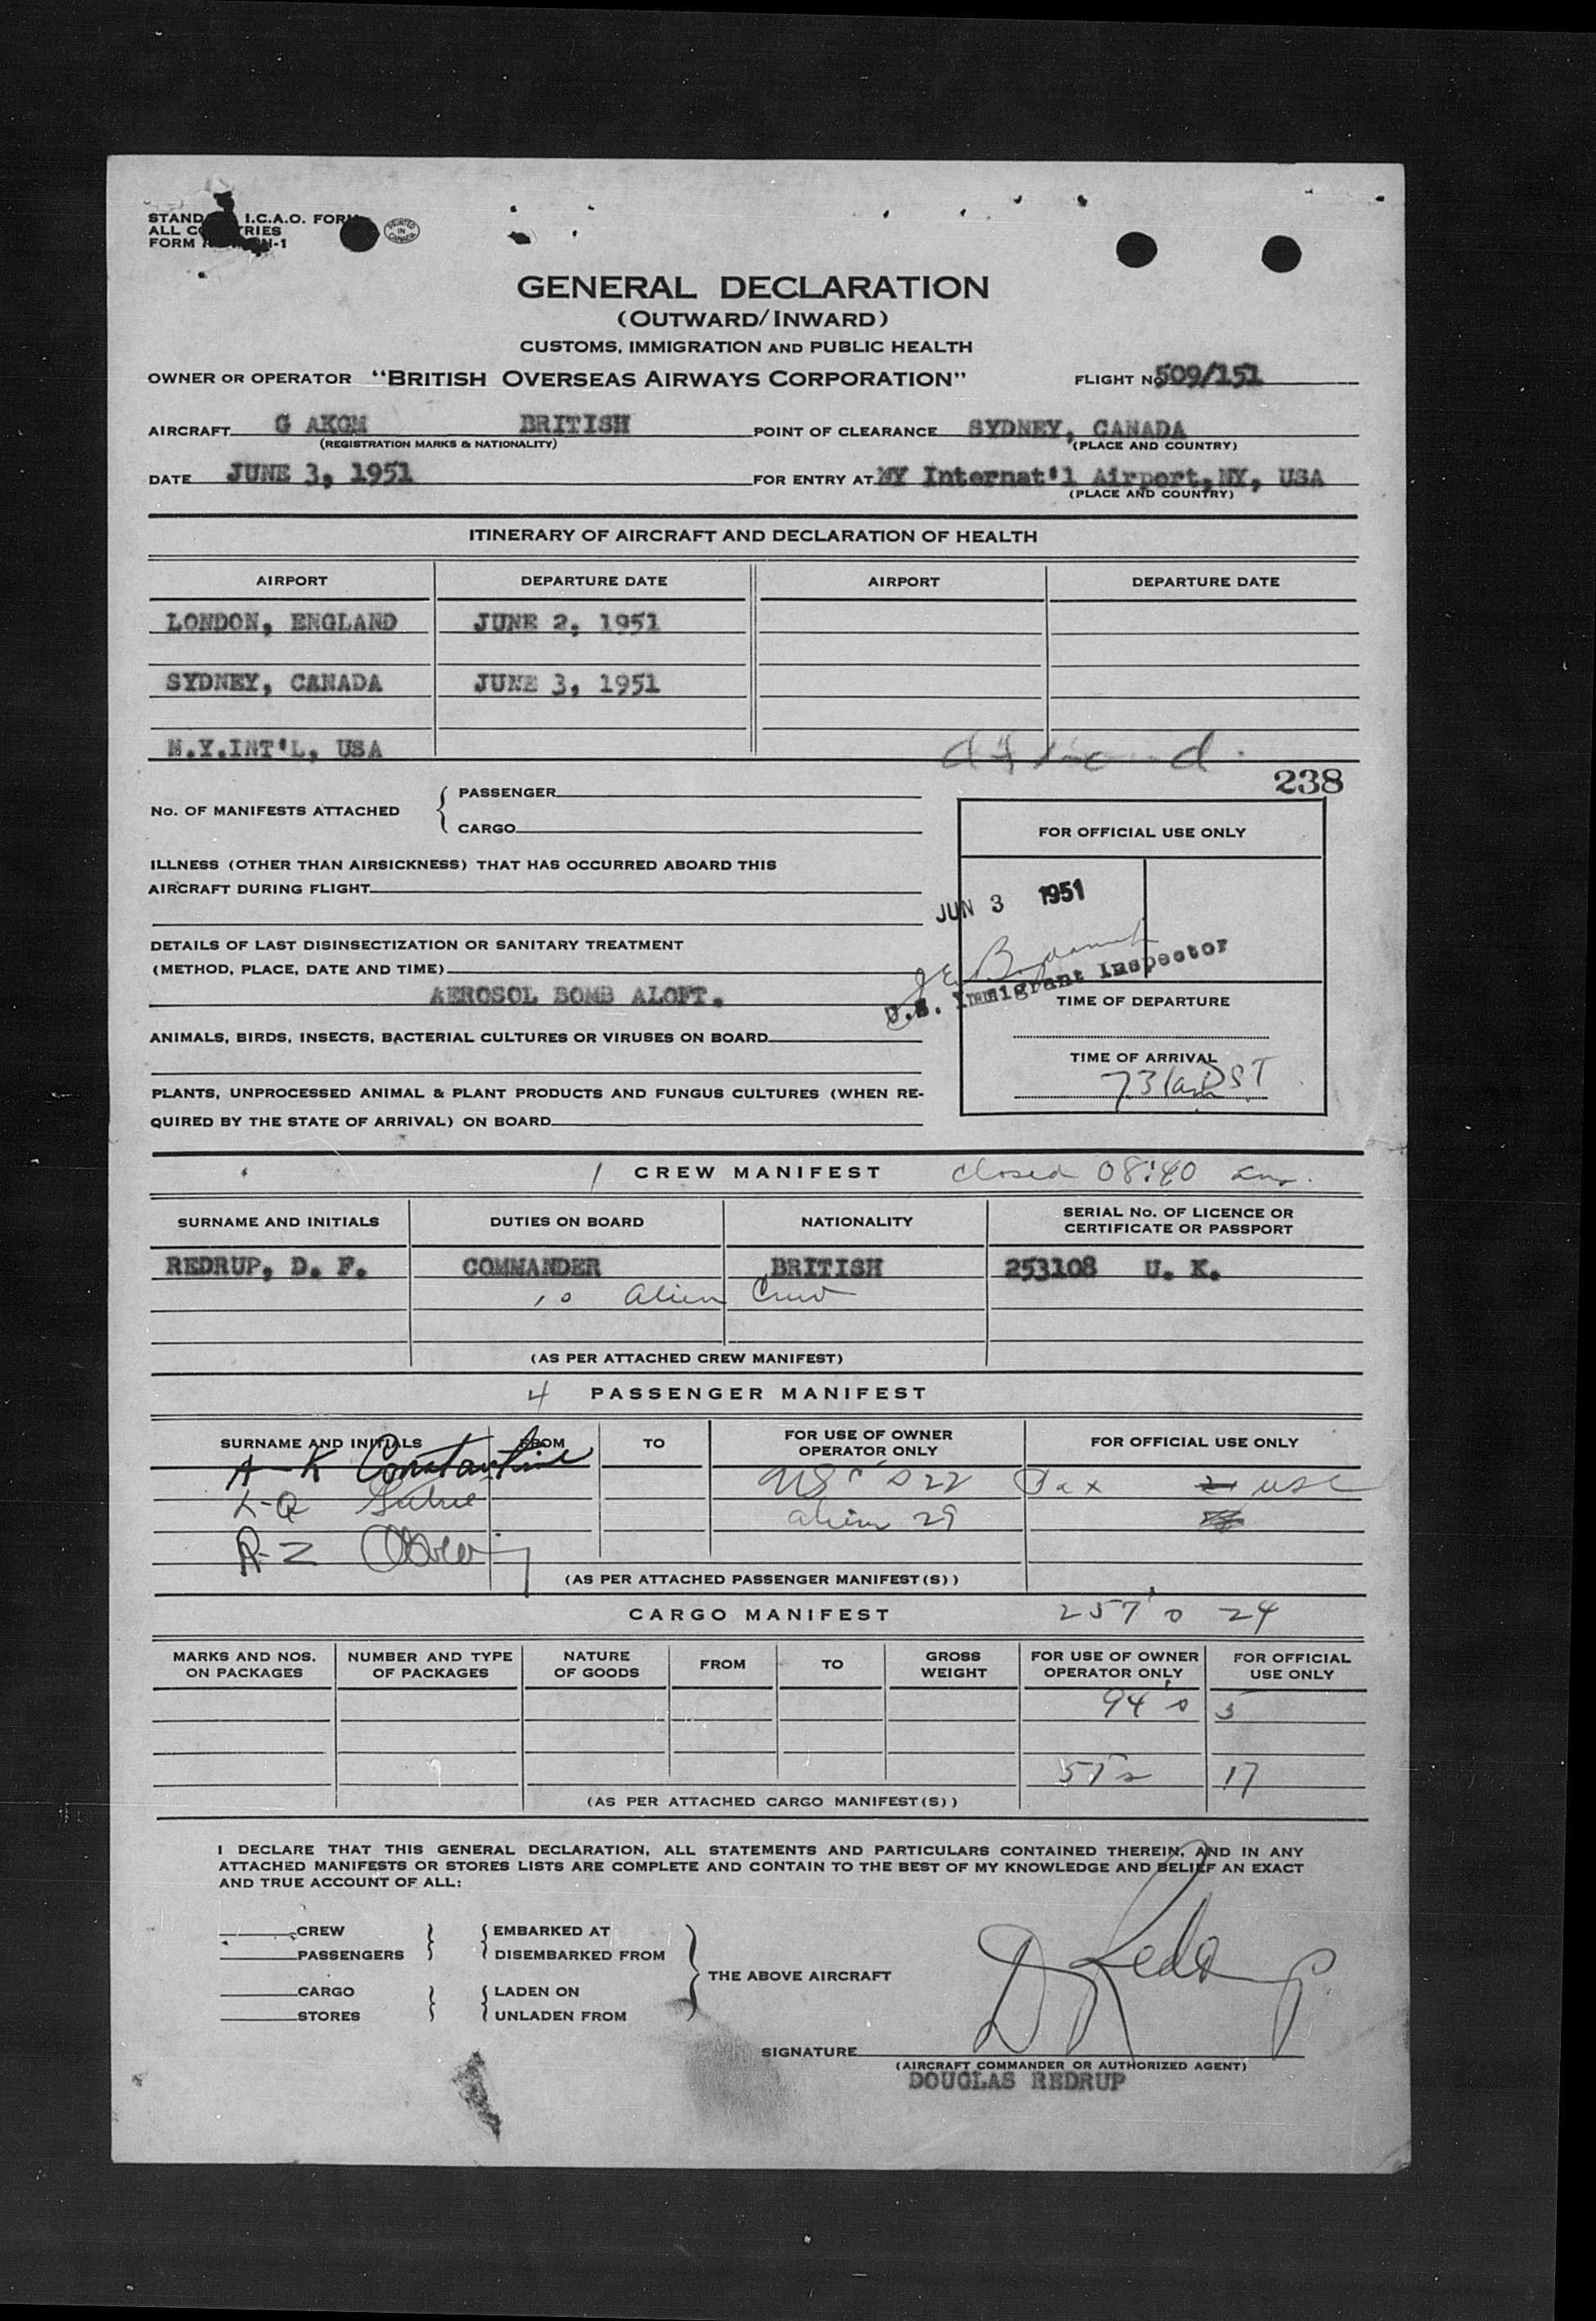 I.C.A.O. FORM
ALL
FORM
PRINTED IN CANADA
GENERAL DECLARATION
(OUTWARD/INWARD)
CUSTOMS, IMMIGRATION AND PUBLIC HEALTH
OWNER OR OPERATOR "BRITISH OVERSEAS AIRWAYS CORPORATION" FLIGHT No 509/151
AIRCRAFT G AKGM BRITISH POINT OF CLEARANCE SYDNEY, CANADA
(REGISTRATION MARKS & NATIONALITY) (PLACE AND COUNTRY)
DATE JUNE 3, 1951 FOR ENTRY AT NY Internat'l Airport, NY, USA
(PLACE AND COUNTRY)
ITINERARY OF AIRCRAFT AND DECLARATION OF HEALTH
AIRPORT DEPARTURE DATE AIRPORT DEPARTURE DATE
LONDON, ENGLAND JUNE 2, 1951
SYDNEY, CANADA JUNE 3, 1951
N.Y.INT'L, USA
238
No. OF MANIFESTS ATTACHED { PASSENGER
CARGO
FOR OFFICIAL USE ONLY
ILLNESS (OTHER THAN AIRSICKNESS) THAT HAS OCCURRED ABOARD THIS
AIRCRAFT DURING FLIGHT
JUN 3 1951
DETAILS OF LAST DISINSECTIZATION OR SANITARY TREATMENT
(METHOD, PLACE, DATE AND TIME)
AEROSOL BOMB ALOFT.
U.S. Immigrant Inspector
TIME OF DEPARTURE
ANIMALS, BIRDS, INSECTS, BACTERIAL CULTURES OR VIRUSES ON BOARD
TIME OF ARRIVAL
731am DST
PLANTS, UNPROCESSED ANIMAL & PLANT PRODUCTS AND FUNGUS CULTURES (WHEN RE-
QUIRED BY THE STATE OF ARRIVAL) ON BOARD
1 CREW MANIFEST closed 08:40 am.
SURNAME AND INITIALS DUTIES ON BOARD NATIONALITY SERIAL No. OF LICENCE OR
CERTIFICATE OR PASSPORT
REDRUP, D. F. COMMANDER BRITISH 253108 U. K.
10 Alien Crew
(AS PER ATTACHED CREW MANIFEST)
4 PASSENGER MANIFEST
SURNAME AND INITIALS FROM TO FOR USE OF OWNER
OPERATOR ONLY FOR OFFICIAL USE ONLY
A-K Constantine
USC's 22 Pax USC
L-Q
alien 29
R-Z
(AS PER ATTACHED PASSENGER MANIFEST(S))
CARGO MANIFEST 257's 24
MARKS AND NOS.
ON PACKAGES NUMBER AND TYPE
OF PACKAGES NATURE
OF GOODS FROM TO GROSS
WEIGHT FOR USE OF OWNER
OPERATOR ONLY FOR OFFICIAL
USE ONLY
94's 5
17
(AS PER ATTACHED CARGO MANIFEST(S))
I DECLARE THAT THIS GENERAL DECLARATION, ALL STATEMENTS AND PARTICULARS CONTAINED THEREIN, AND IN ANY
ATTACHED MANIFESTS OR STORES LISTS ARE COMPLETE AND CONTAIN TO THE BEST OF MY KNOWLEDGE AND BELIEF AN EXACT
AND TRUE ACCOUNT OF ALL:
CREW EMBARKED AT
PASSENGERS DISEMBARKED FROM
THE ABOVE AIRCRAFT
CARGO LADEN ON
STORES UNLADEN FROM
D Redrup
SIGNATURE
(AIRCRAFT COMMANDER OR AUTHORIZED AGENT)
DOUGLAS REDRUP